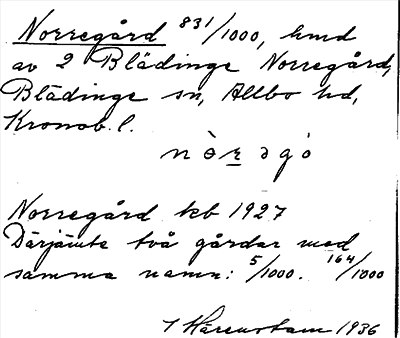 Norregård 831/1000, hmd
av 2 Blädinge Norregård,
Blädinge sn, Allbo hd,
Kronob. l.
Norregård kb 1927
Därjämte två gårdar med
samma namn: 5/1000. 164/1000
1936